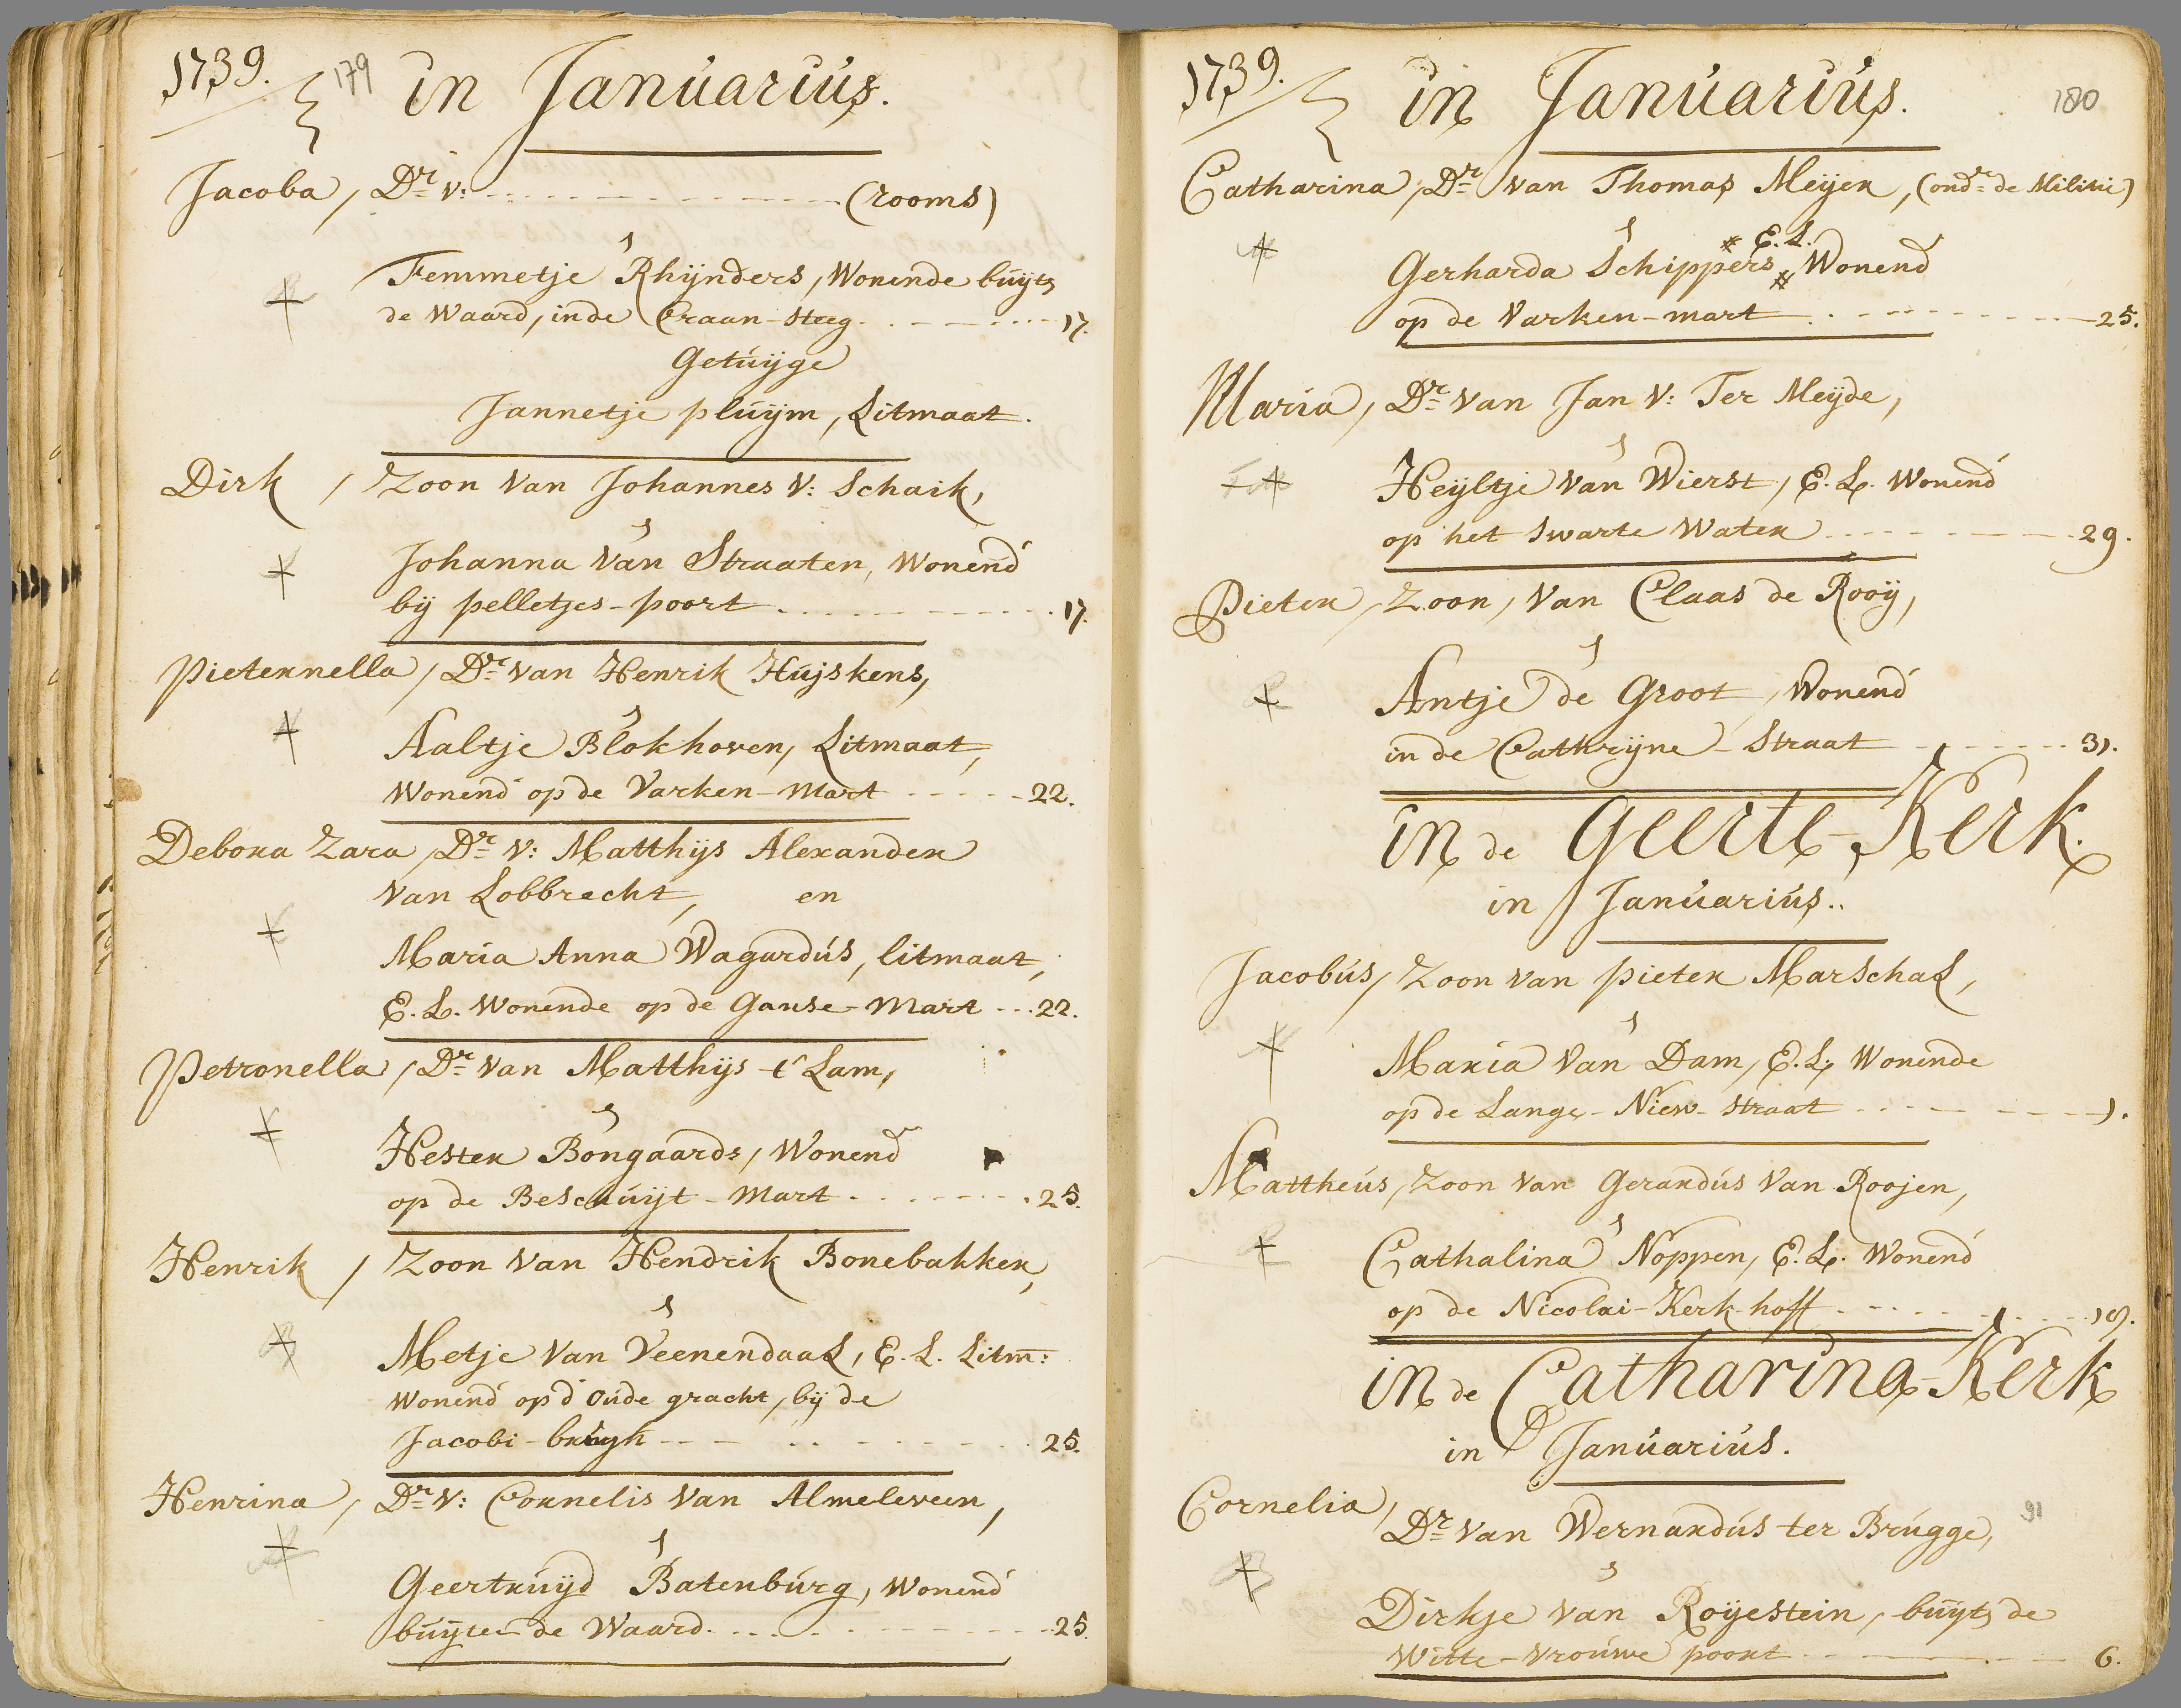 1739. 179 in Januarius.
Jacoba, Dr v: (rooms)
Femmetje Rhijnders, Wonende buyts
de Waard, in de Craan-steeg 17.
Getuijge
Jannetje pluijm, Litmaat.
Dirk, Zoon van Johannes v: Schaik,
Johanna van Straaten, Wonend
bij pelletjes-poort 17.
Pieternella, Dr van Henrik Huijskens,
Aaltje Blokhoven, Litmaat,
Wonend op de Varken-Mart 22.
Debora Zara, Dr v: Matthijs Alexander
van Lobbrecht, en
Maria Anna Wagardus, litmaat,
E. L. Wonende op de Ganse-Mart 22.
Petronella, Dr van Matthijs t' Lam,
Hester Bongaards, Wonend
op de Beschuijt-Mart 25.
Henrik, Zoon van Hendrik Bonebakker,
Metje van Veenendaal, E. L. Litm:
Wonend op d' Oude gracht, bij de
Jacobi-brugh 25.
Henrina, Dr v: Cornelis van Almeleveen,
Geertruijd Batenburg, Wonend
buijten de Waard. 25.
1739. in Januarius. 180
Catharina, Dr van Thomas Meijer, (ondr de Militie)
E. L.
Gerharda Schippers, Wonend
op de Varken-mart 25.
Maria, Dr van Jan v: Ter Meijde,
Heijltje van Wierst, E. L. Wonend
op het Swarte Water 29.
Pieter, Zoon, van Claas de Rooij,
Antje de Groot, Wonend
in de Cathrijne-Straat 31.
in de Geerte-Kerk.
in Januarius..
Jacobus, Zoon van pieter Marschal,
Maria van Dam, E. L. Wonende
op de Lange-Niew-straat 1.
Mattheus, Zoon van Gerardus van Roojen,
Cathalina Noppen, E. L. Wonend
op de Nicolai-Kerk-hoff 18.
in de Catharina-Kerk
in Januarius.
Cornelia, Dr van Wernardus ter Brugge, 91
Dirkje van Roijestein, buijts de
Witte-vrouwe poort 6.